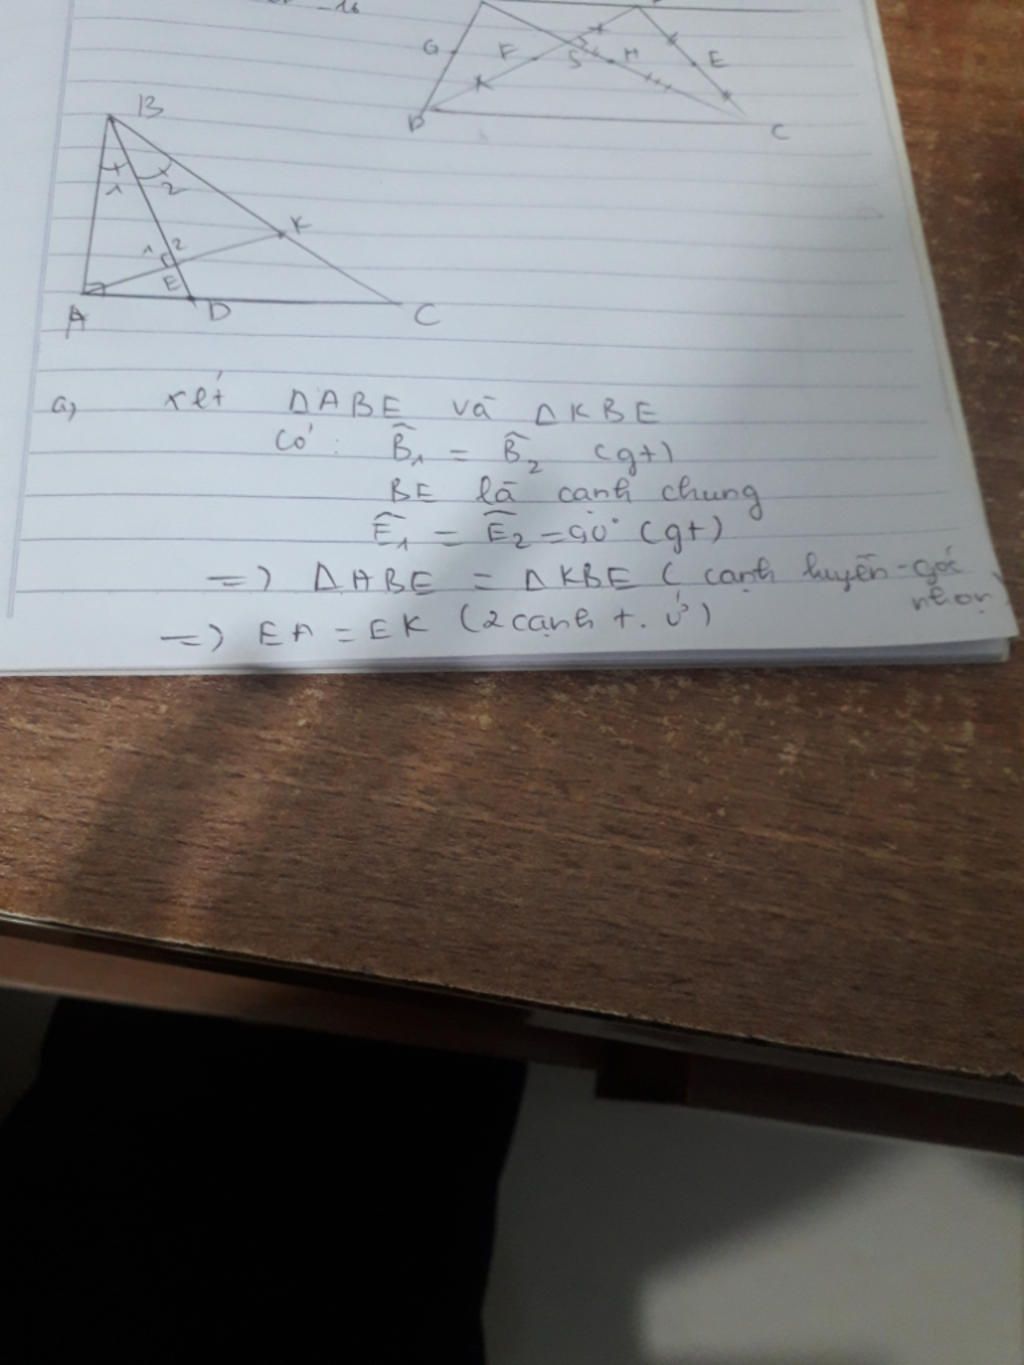 16
G F S H E
B C
B
1 2
1 2 K
E
A D C
a, xét ΔABE và ΔKBE
Có: B̂₁ = B̂₂ (gt)
BE là cạnh chung
Ê₁ = Ê₂ = 90° (gt)
=> ΔABE = ΔKBE (cạnh huyền - góc
nhọn)
=> EA = EK (2 cạnh t. ứ)